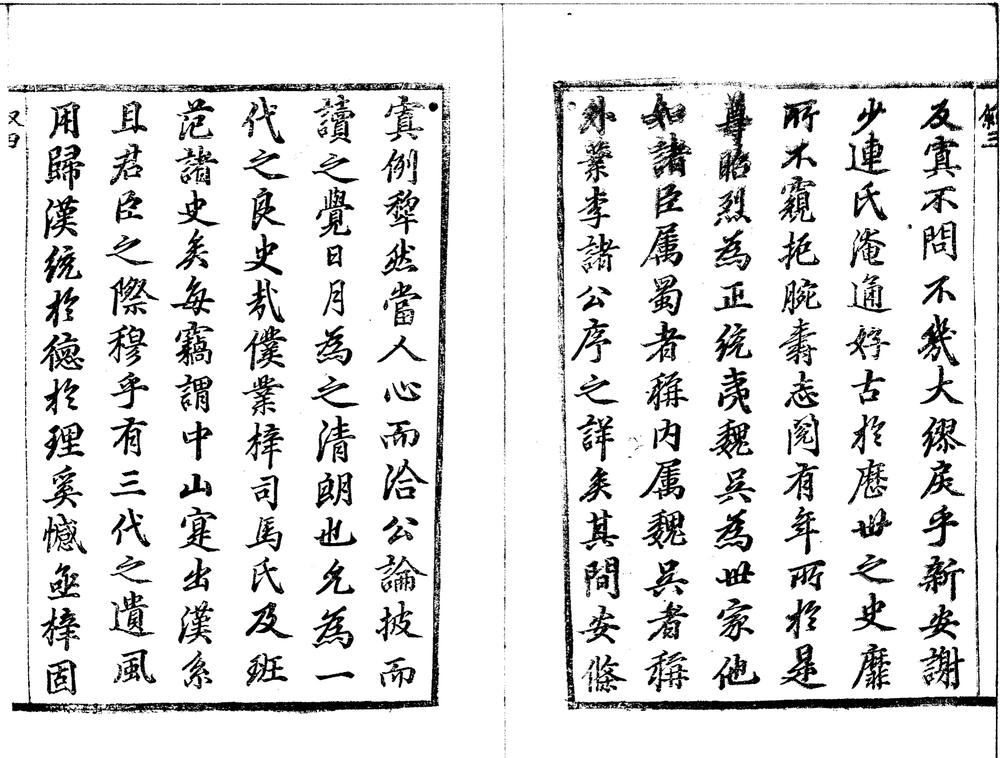 反寘不問不幾大繆戾乎新安謝
少連氏淹通好古於歷世之史靡
所不窺扼腕壽志閱有年所於是
尊昭烈為正統夷魏吳為世家他
如諸臣属蜀者稱内属魏吳者稱
外葉李諸公序之詳矣其間安條
寘例犂然當人心而洽公論披而
讀之覺日月為之清朗也允為一
代之良史哉僕業梓司馬氏及班
范諸史矣每竊謂中山寔出漢系
且君臣之際穆乎有三代之遺風
用歸漢統於德於理奚憾亟梓固